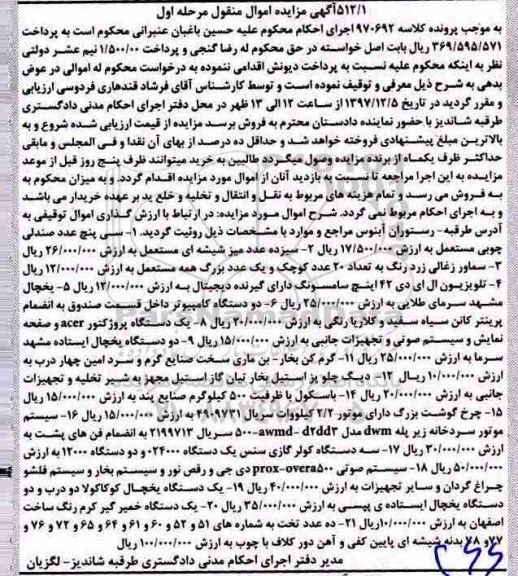 ۵۱۲/۱آگهی مزایده اموال منقول مرحله اول
به موجب پرونده کلاسه ۹۷۰۶۹۲ اجرای احکام محکوم علیه حسین باغبان عنبرانی محکوم است به پرداخت
۳۶۹/۵۹۵/۵۷۱ ریال بابت اصل خواسته در حق محکوم له رضا گنجی و پرداخت ۱/۵۰۰/۰۰۰ نیم عشر دولتی
نظر به اینکه محکوم علیه نسبت به پرداخت دیونش اقدامی ننموده به درخواست محکوم له اموالی در عوض
بدهی به شرح ذیل معرفی و توقیف نموده است و توسط کارشناس آقای فرشاد قندهاری فردوسی ارزیابی
و مقرر گردید در تاریخ ۱۳۹۷/۱۲/۵ از ساعت ۱۲ الی ۱۳ ظهر در محل دفتر اجرای احکام مدنی دادگستری
طرقبه شاندیز با حضور نماینده دادستان محترم به فروش برسد مزایده از قیمت ارزیابی شده شروع و به
بالاترین مبلغ پیشنهادی فروخته خواهد شد و حداقل ده درصد از بهای آن نقدا و فی المجلس و مابقی
حداکثر ظرف یکماه از برنده مزایده وصول میگردد طالبین به خرید میتوانند ظرف پنج روز قبل از موعد
مزایده به این اجرا مراجعه تا نسبت به بازدید آنان از اموال مورد مزایده اقدام گردد. و به میزان محکوم به
به فروش می رسد و تمام هزینه های مربوط به نقل و انتقال و تخلیه و خلع ید بر عهده خریدار می باشد
و به اجرای احکام مربوط نمی گردد. شرح اموال مورد مزایده: در ارتباط با ارزش گذاری اموال توقیفی به
آدرس طرقبه- رستوران آبنوس مراجع و موارد با مشخصات ذیل روئیت گردید. ۱- سی پنج عدد صندلی
چوبی مستعمل به ارزش ۱۷/۵۰۰/۰۰۰ ریال ۲- سیزده عدد میز شیشه ای مستعمل به ارزش ۲۶/۰۰۰/۰۰۰ ریال
۳- سماور زغالی زرد رنگ به تعداد ۲۰ عدد کوچک و یک عدد بزرگ همه مستعمل به ارزش ۱۲/۰۰۰/۰۰۰ ریال
۴- تلویزیون ال ای دی ۴۲ اینچ سامسونگ دارای گیرنده دیجیتال به ارزش ۱۲/۰۰۰/۰۰۰ ریال ۵- یخچال
مشهد سرمای طلایی به ارزش ۲۵/۰۰۰/۰۰۰ ریال ۶- دو دستگاه کامپیوتر داخل قسمت صندوق به انضمام
پرینتر کانن سیاه سفید و کلاریا رنگی به ارزش ۲۰/۰۰۰/۰۰۰ ریال ۸- یک دستگاه پروژکتور acer و صفحه
نمایش و سیستم صوتی و تجهیزات جانبی به ارزش ۱۵/۰۰۰/۰۰۰ ریال ۹- دو دستگاه یخچال ایستاده مشهد
سرما به ارزش ۲۵/۰۰۰/۰۰۰ ریال ۱۱- گرم کن بخار- بن ماری سخت صنایع گرم و سرد امین چهار درب به
ارزش ۱۰/۰۰۰/۰۰۰ ریال ۱۳- دیگ چلو پز استیل بخار تیان گاز استیل مجهز به شیر تخلیه و تجهیزات
جانبی به ارزش ۲۰/۰۰۰/۰۰۰ ریال ۱۴- باسکول با ظرفیت ۵۰۰ کیلوگرم صنایع پند به ارزش ۱۵/۰۰۰/۰۰۰ ریال
۱۵- چرخ گوشت بزرگ دارای موتور ۲/۲ کیلووات سریال ۴۹۰۹۷۳۱ به ارزش ۱۵/۰۰۰/۰۰۰ ریال ۱۶- سیستم
موتور سردخانه زیر پله dwm مدل awmd- d۲dd۳-۵۰۰ سریال ۲۱۹۹۷۱۳ به انضمام فن های پشت به
ارزش ۳۰/۰۰۰/۰۰۰ ریال ۱۷- سه دستگاه کولر گازی سنس یک دستگاه ۰۲۴۰۰۰ و دو دستگاه ۱۲۰۰۰ به ارزش
۵۰/۰۰۰/۰۰۰ ریال ۱۸- سیستم صوتی prox-overa۵۰۰ دی جی و رقص نور و سیستم بخار و سیستم فلشو
چراغ گردان و سایر تجهیزات به ارزش ۴۰/۰۰۰/۰۰۰ ریال ۱۹- یک دستگاه یخچال کوکاکولا دو درب و دو
دستگاه یخچال ایستاده ی پپسی به ارزش ۳۵/۰۰۰/۰۰۰ ریال ۲۰- یک دستگاه خمیر گیر کرم رنگ ساخت
اصفهان به ارزش ۱۰/۰۰۰/۰۰۰ریال ۲۱- ده عدد تخت به شماره های ۵۱ و ۵۲ و ۶۰ و ۶۱ و ۶۴ و ۶۵ و ۷۲ و ۷۶ و
۷۷و ۷۸ بدنه شیشه ای پایین کفی و آهن دور کلاف با چوب به ارزش ۱۰۰/۰۰۰/۰۰۰ ریال
مدیر دفتر اجرای احکام مدنی دادگستری طرقبه شاندیز- لگزیان